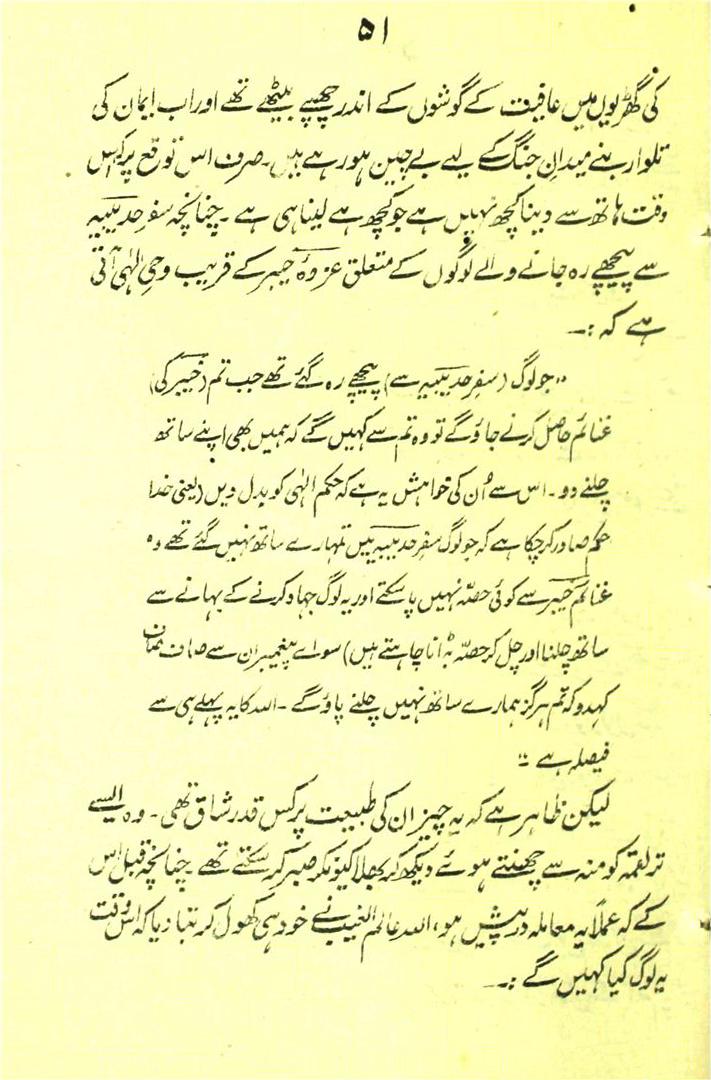 ۵۱
کی گھڑیوں میں عافیت کے گوشوں کے اندر چھپے بیٹھے تھے اور اب ایمان کی
تلوار بنے میدانِ جنگ کے لیے بے چین ہو رہے ہیں۔ صرف اس توقع پر کہ اس
وقت ہاتھ سے دینا کچھ نہیں ہے جو کچھ ہے لینا ہی ہے۔ چنانچہ سفرِ حدیبیہ
سے پیچھے رہ جانے والے لوگوں کے متعلق غزوۂ خیبر کے قریب وحیِ الٰہی آتی
ہے کہ :۔
"جو لوگ (سفرِ حدیبیہ سے) پیچھے رہ گئے تھے جب تم (خیبر کی)
غنائم حاصل کرنے جاؤ گے تو وہ تم سے کہیں گے کہ ہمیں بھی اپنے ساتھ
چلنے دو۔ اس سے اُن کی خواہش یہ ہے کہ حکم الٰہی کو بدل دیں (یعنی خدا
حکم صادر کر چکا ہے کہ جو لوگ سفرِ حدیبیہ میں تمہارے ساتھ نہیں گئے تھے وہ
غنائم خیبر سے کوئی حصّہ نہیں پا سکتے اور یہ لوگ جہاد کرنے کے بہانے سے
ساتھ چلنا اور چل کر حصّہ بٹانا چاہتے ہیں) سو اے پیغمبر ان سے صاف صاف
کہدو کہ تم ہرگز ہمارے ساتھ نہیں چلنے پاؤ گے۔ اللہ کا یہ پہلے ہی سے
فیصلہ ہے"
لیکن ظاہر ہے کہ یہ چیز ان کی طبیعت پر کس قدر شاق تھی۔ وہ ایسے
تر لقمہ کو منہ سے چھنتے ہوئے دیکھ کر بھلا کیونکر صبر کر سکتے تھے۔ چنانچہ قبل اس
کے کہ عملاً یہ معاملہ درپیش ہو، اللہ عالم الغیب نے خود ہی کھول کر بتا دیا کہ اس وقت
یہ لوگ کیا کہیں گے :۔